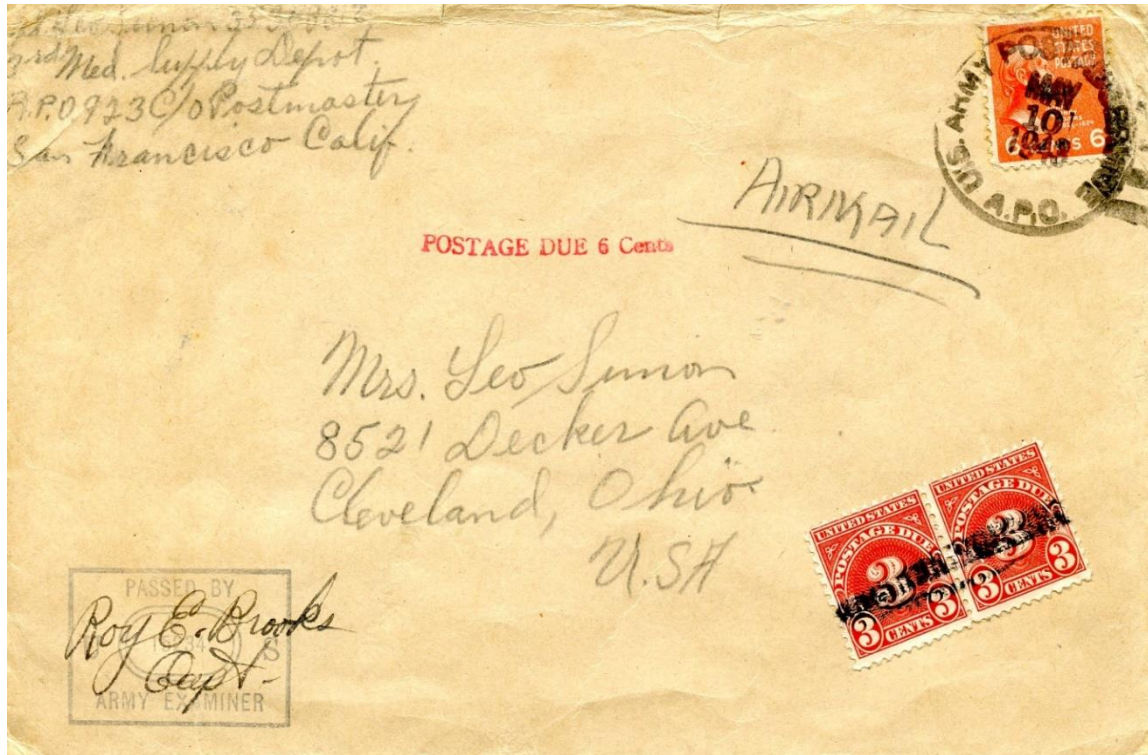 3rd Med. Supply Depot.
A.P.O 923 C/o Postmaster
San Francisco Calif.
UNITED
STATES
POSTAGE
6 CENTS 6
U.S. ARMY POSTAL SERVICE
MAY
10
A.P.O.
AIRMAIL
POSTAGE DUE 6 Cents
Mrs. Leo Simon
8521 Decker Ave
Cleveland, Ohio
U.S.A
UNITED STATES
POSTAGE DUE
3
3 CENTS 3
UNITED STATES
POSTAGE DUE
3
3 CENTS 3
PASSED BY
Roy E. Brooks
S
Capt.
ARMY EXAMINER